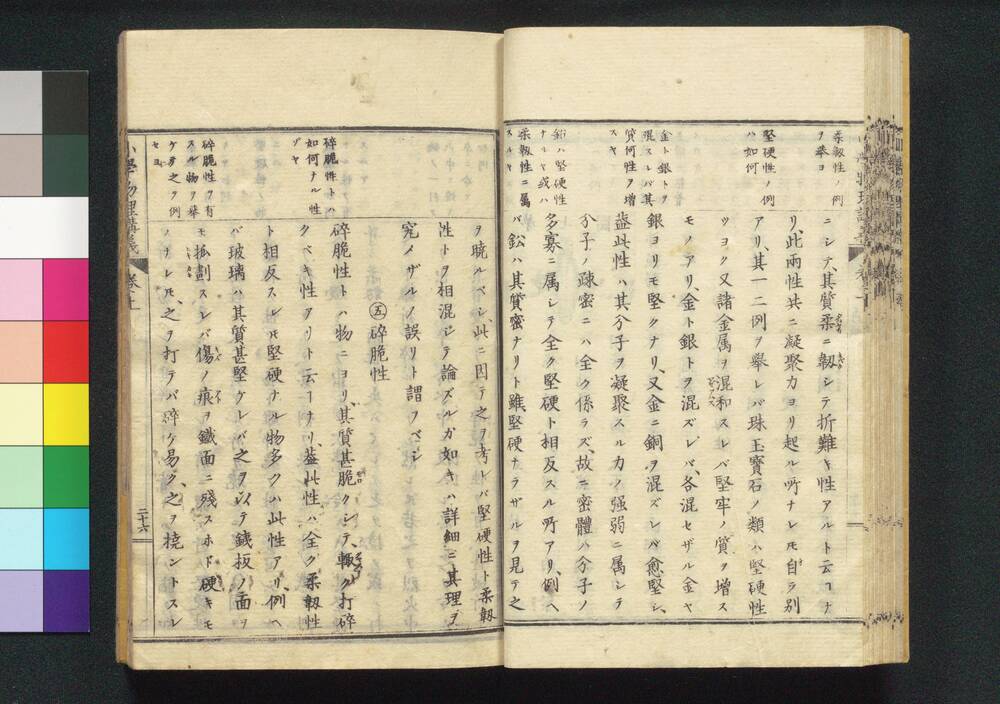 柔靱性ノ例
ヲ擧ヨ
堅硬性ノ例
ハ如何
金ト銀トヲ
混スレバ其
質何性ヲ増
スヤ
鉛ハ堅硬性
ナルヤ或ハ
柔靱性ニ属
スルヤ
ニシテ、其質柔ニ靱シテ折難キ性アルト云フナ
リ、此兩性共ニ凝聚力ヨリ起ル所ナレ𪜈自ラ別
アリ、其一二例ヲ擧レバ珠玉寶石ノ類ハ堅硬性
ツヨク又諸金属ヲ混和スレバ堅牢ノ質ヲ増ス
モノアリ、金ト銀トヲ混ズレバ、各混セザル金ヤ
銀ヨリモ堅クナリ、又金ニ銅ヲ混ズレバ愈堅シ、
蓋此性ハ其分子ヲ凝聚スル力ノ强弱ニ属シテ
分子ノ疎密ニハ全ク係ラズ、故ニ密體ハ分子ノ
多寡ニ属シテ全ク堅硬ト相反スル所アリ、例ヘ
バ鉛ハ其質密ナリト雖、堅硬ナラザルヲ見テ之
碎脆性トハ
如何ナル性
ゾヤ
碎脆性ヲ有
スル物ヲ擧
ケテ之ヲ例
セヨ
ヲ暁ルベシ、此ニ因テ之ヲ考レバ堅硬性ト柔靱
性トヲ相混ジテ論ズルガ如キハ詳細ニ其理ヲ
究メザルノ誤リト謂フベシ
㊄碎脆性
碎脆性トハ物ニヨリ、其質甚脆クシテ、輙ク打碎
クベキ性アリト云フナリ、蓋此性ハ全ク柔靱性
ト相反スレ𪜈堅硬ナル物多クハ此性アリ、例ヘ
バ玻璃ハ其質甚堅ケレバ之ヲ以テ鐵板ノ面ヲ
モ抓劃スレバ傷ノ痕ヲ鐵面ニ殘スホド硬キモ
ノナレ𪜈、之ヲ打テバ碎ケ易ク、之ヲ撓ントスレ
小學物理講義 卷之上
二十六